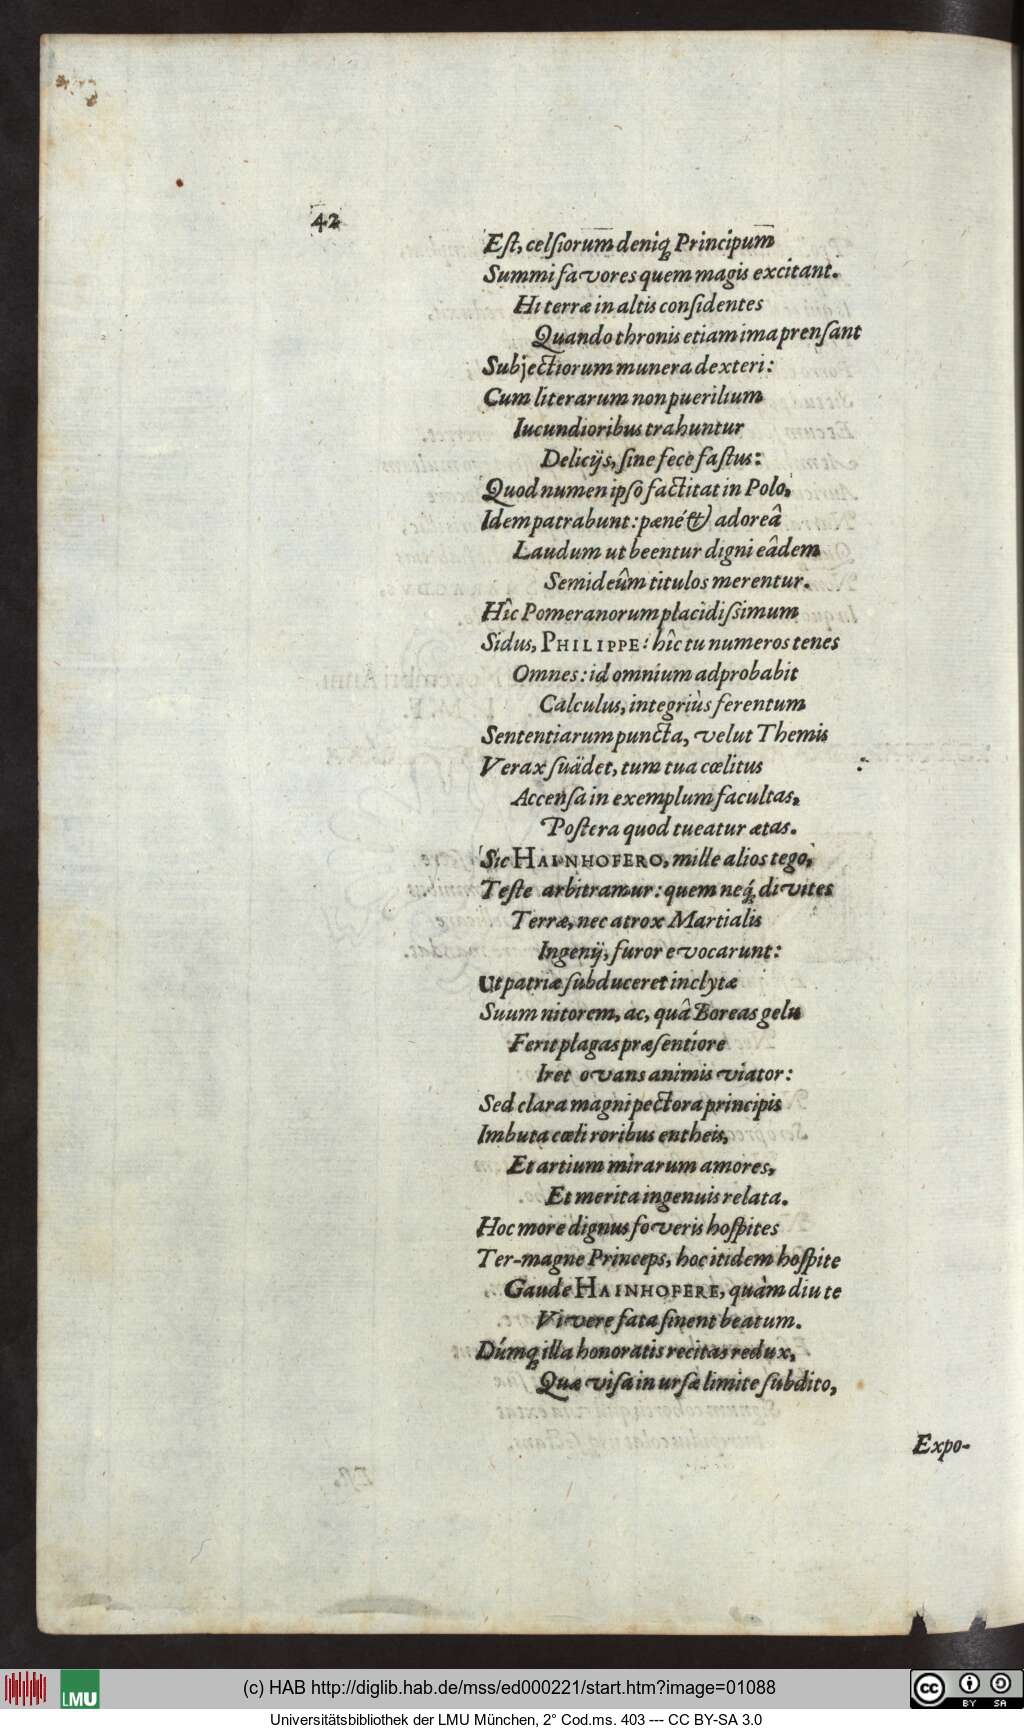 42
Est, celsiorum deniq; Principum
Summi favores quem magis excitant.
Hi terræ in altis considentes
Quando thronis etiam ima prensant
Subjectiorum munera dexteri:
Cum literarum non puerilium
Iucundioribus trahuntur
Delicijs, sine fece fastus:
Quod numen ipso factitat in Polo,
Idem patrabunt: pæné & adoreâ
Laudum ut beentur digni eâdem
Semideûm titulos merentur.
Hîc Pomeranorum placidissimum
Sidus, PHILIPPE: hîc tu numeros tenes
Omnes: id omnium adprobabit
Calculus, integriùs ferentum
Sententiarum puncta, velut Themis
Verax suädet, tum tua cœlitus
Accensa in exemplum facultas,
Postera quod tueatur ætas.
Sic HAINHOFERO, mille alios tego,
Teste arbitramur: quem neq; divites
Terræ, nec atrox Martialis
Ingenij, furor evocarunt:
Ut patriæ subduceret inclytæ
Suum nitorem, ac, quâ Boreas gelu
Ferit plagas præsentiore
Iret ovans animis viator:
Sed clara magni pectora principis
Imbuta cœli roribus entheis,
Et artium mirarum amores,
Et merita ingenuis relata.
Hoc more dignus foveris hospites
Ter-magne Princeps, hoc itidem hospite
Gaude HAINHOFERE, quàm diu te
Vivere fata sinent beatum.
Dúmq; illa honoratis recitas redux,
Quæ visa in ursæ limite subdito,
Expo-
LMU
(c) HAB http://diglib.hab.de/mss/ed000221/start.htm?image=01088
cc BY SA
Universitätsbibliothek der LMU München, 2° Cod.ms. 403 --- CC BY-SA 3.0